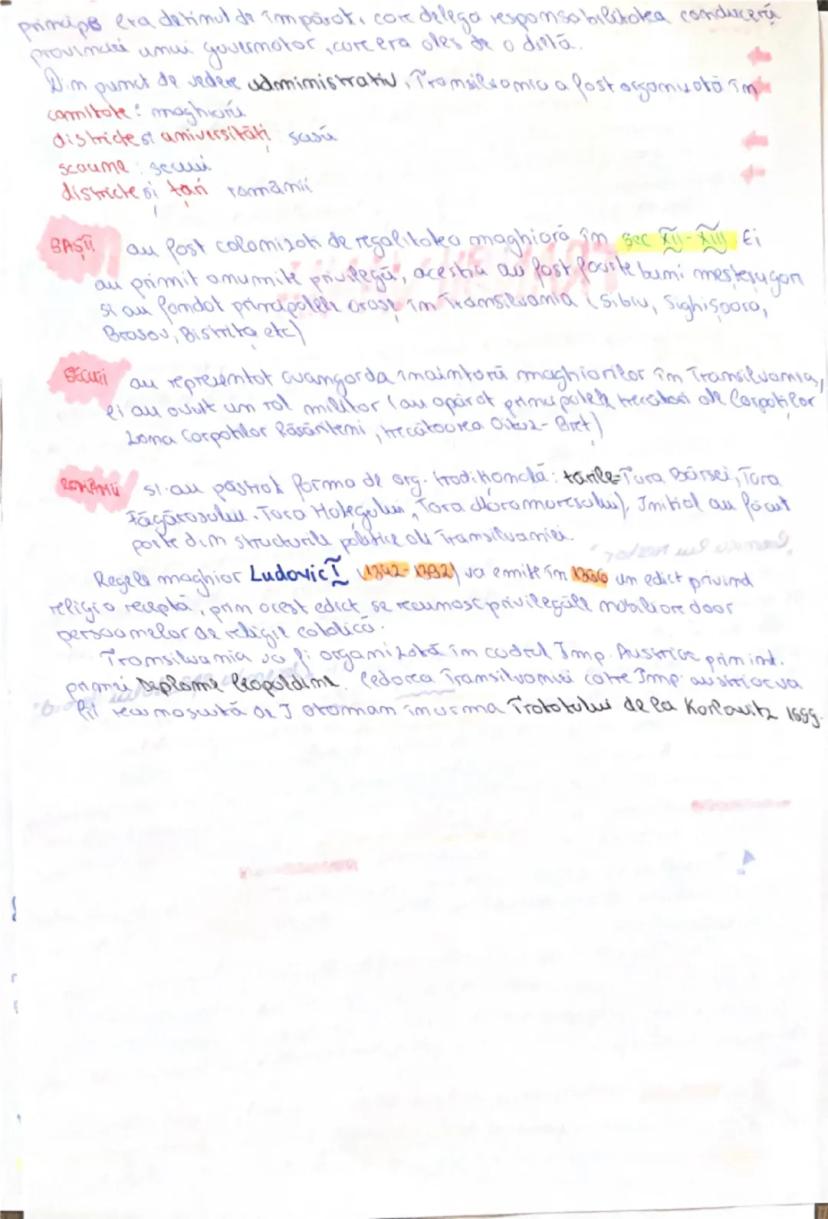 principe era detinut de împărat, care delega responsabilitatea conducerii
provinciei unui guvernator, care era ales de o dietă.
Din punct de vedere administrativ, Transilvania a fost organizată în
comitate: maghiarii
districte si universități sasii
scaune: secuii
districte si țări românii
SAȘII au fost colonizati de regalitatea maghiară în sec XII-XIII Ei
au primit anumite privilegii, acestia au fost foarte buni mesteșugari
si au fondat principalele orașe în Transilvania (Sibiu, Sighișoara,
Brasov, Bistrița etc)
Secuii au reprezentat avangarda înaintată maghiarilor în Transilvania,
ei au avut un rol militar (au apărat principalele trecători ale Carpaților
zona Carpatilor Răsăriteni, trecătoarea Oituz-Bret)
ROMÂNII si-au păstrat forma de org. tradițională: tarile-Tara Bârsei, Tara
Făgărasului, Tara Hategului, Tara Maramuresului), Initial au făcut
parte din structurile politice ale Transilvaniei.
Regele maghiar Ludovic I (1342-1382) va emite în 1366 un edict privind
religia receptă, prin acest edict, se recunosc privilegiile nobiliare doar
persoanelor de religie catolică.
Transilvania va fi organizată în cadrul Imp. Austriac primind.
primei Diplome Leopoldine. Cedarea Transilvaniei catre Imp austriac va
fi recunoscută de I otoman în urma Tratatului de la Karlowitz 1699.